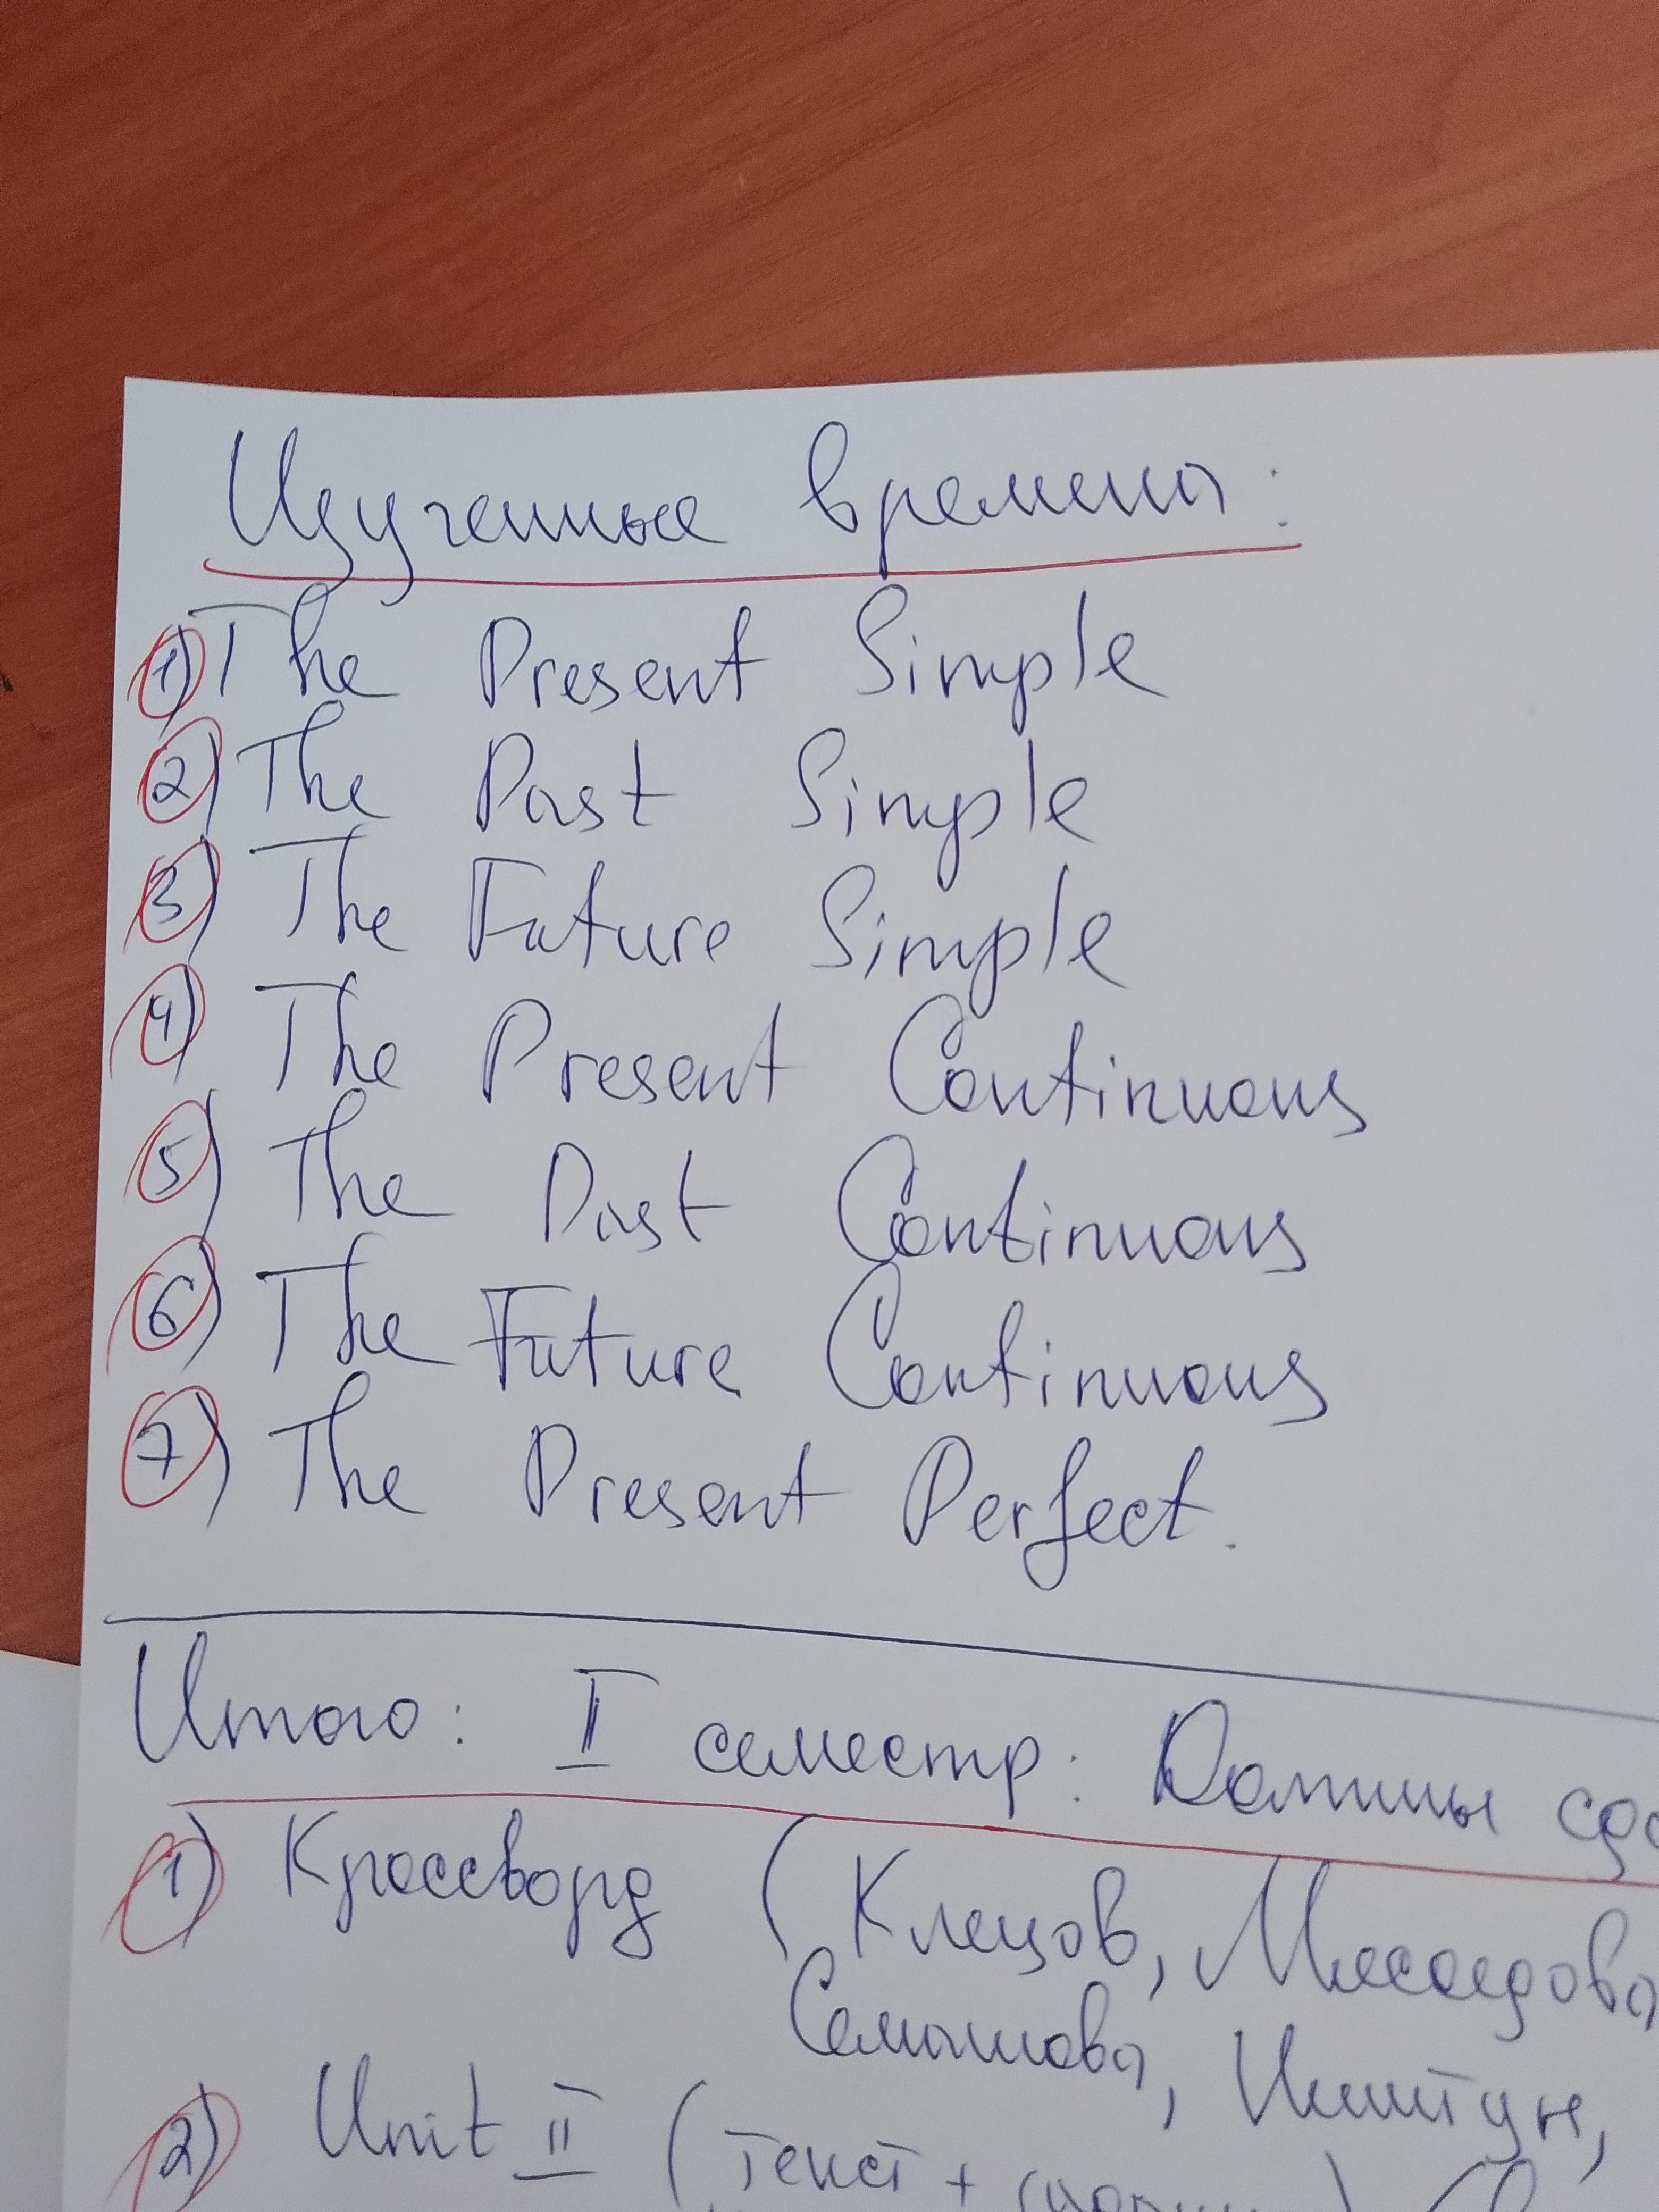 Изученные времена:
1) The Present Simple
2) The Past Simple
3) The Future Simple
4) The Present Continuous
5) The Past Continuous
6) The Future Continuous
7) The Present Perfect.
Итого: I семестр: Должны
1) Кроссворд (Клецов, Мясоедова,
2) Unit II (текст +